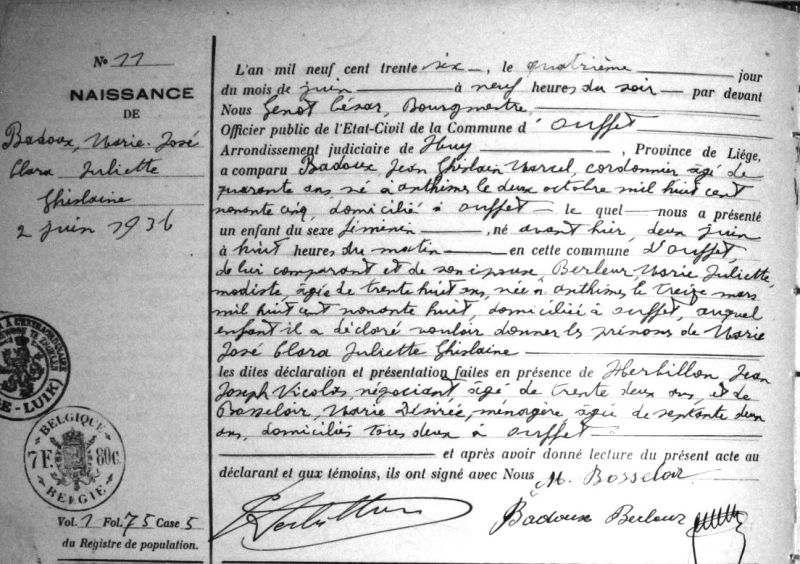 No 11
NAISSANCE
DE
Badoux, Marie-José
Clara Juliette
Ghislaine
2 juin 1936
L'an mil neuf cent trente six, le quatrième jour
du mois de juin à neuf heures du soir par devant
Nous Genot César, Bourgmestre,
Officier public de l'Etat-Civil de la Commune d' Ouffet
Arrondissement judiciaire de Huy, Province de Liége,
a comparu Badoux, Jean Ghislain Marcel, cordonnier âgé de
quarante ans, né à Anthisnes le deux octobre mil huit cent
nonante cinq, domicilié à Ouffet le quel nous a présenté
un enfant du sexe féminin, né avant hier, deux juin
à huit heures du matin en cette commune d'Ouffet,
de lui comparant et de son épouse, Berleur Marie Juliette,
modiste, âgée de trente huit ans, née à Anthisnes le treize mars
mil huit cent nonante huit, domiciliée à Ouffet, auquel
enfant il a déclaré vouloir donner les prénoms de Marie
José Clara Juliette Ghislaine
les dites déclaration et présentation faites en présence de Herbillon, Jean
Joseph Nicolas, négociant, âgé de trente deux ans, et de
Bosseloir, Marie Désirée, ménagère âgée de septante deux
ans, domiciliés tous deux à Ouffet
et après avoir donné lecture du présent acte au
déclarant et aux témoins, ils ont signé avec Nous M. Bosseloir
Herbillon Badoux Berleur
E-LUIK)
BELGIQUE
7F. 80c.
BELGIE
Vol. 1 Fol. 75 Case 5
du Registre de population.